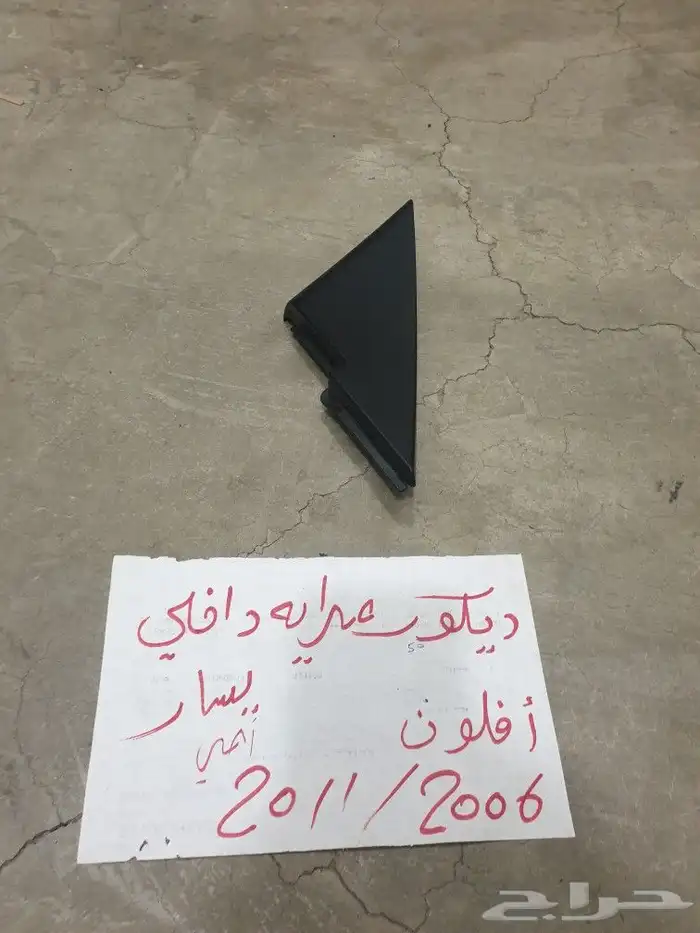 ديكور مرايه داخلي
50
يسار
أفلون
أصلي
2011/2006
حراج